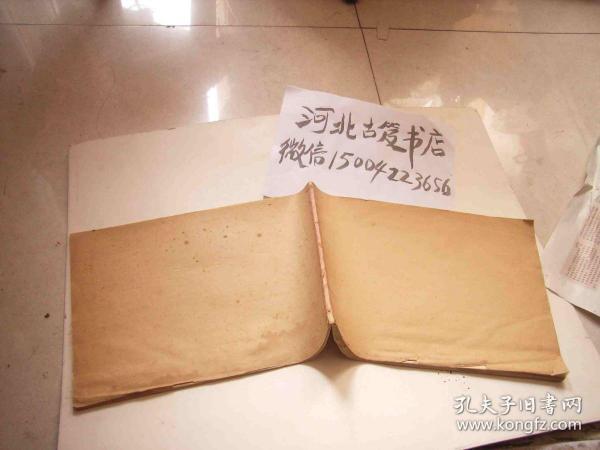 河北古笈书店
微信15004223656
孔夫子旧书网
www.kongfz.com